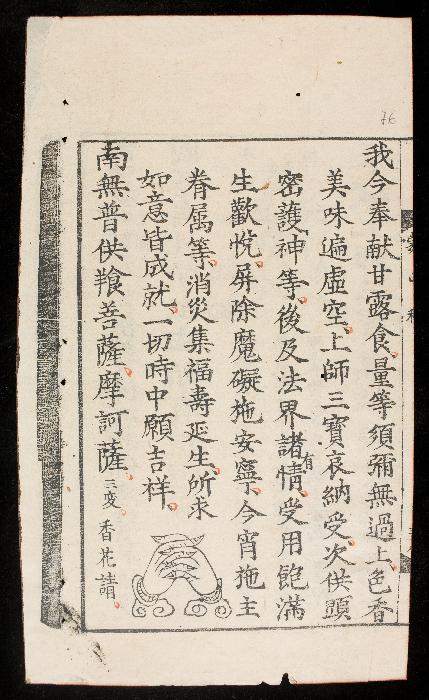 76
我今奉献甘露食量等須彌無過上色香
美味遍虛空上師三寶哀納受次供頭
密護神等後及法界諸有情受用飽滿
生歡悅屏除魔礙施安寧今宵施主
眷属等消災集福壽延生所求
如意皆成就一切時中願吉祥
南無普供飡菩薩摩訶薩三变香花請